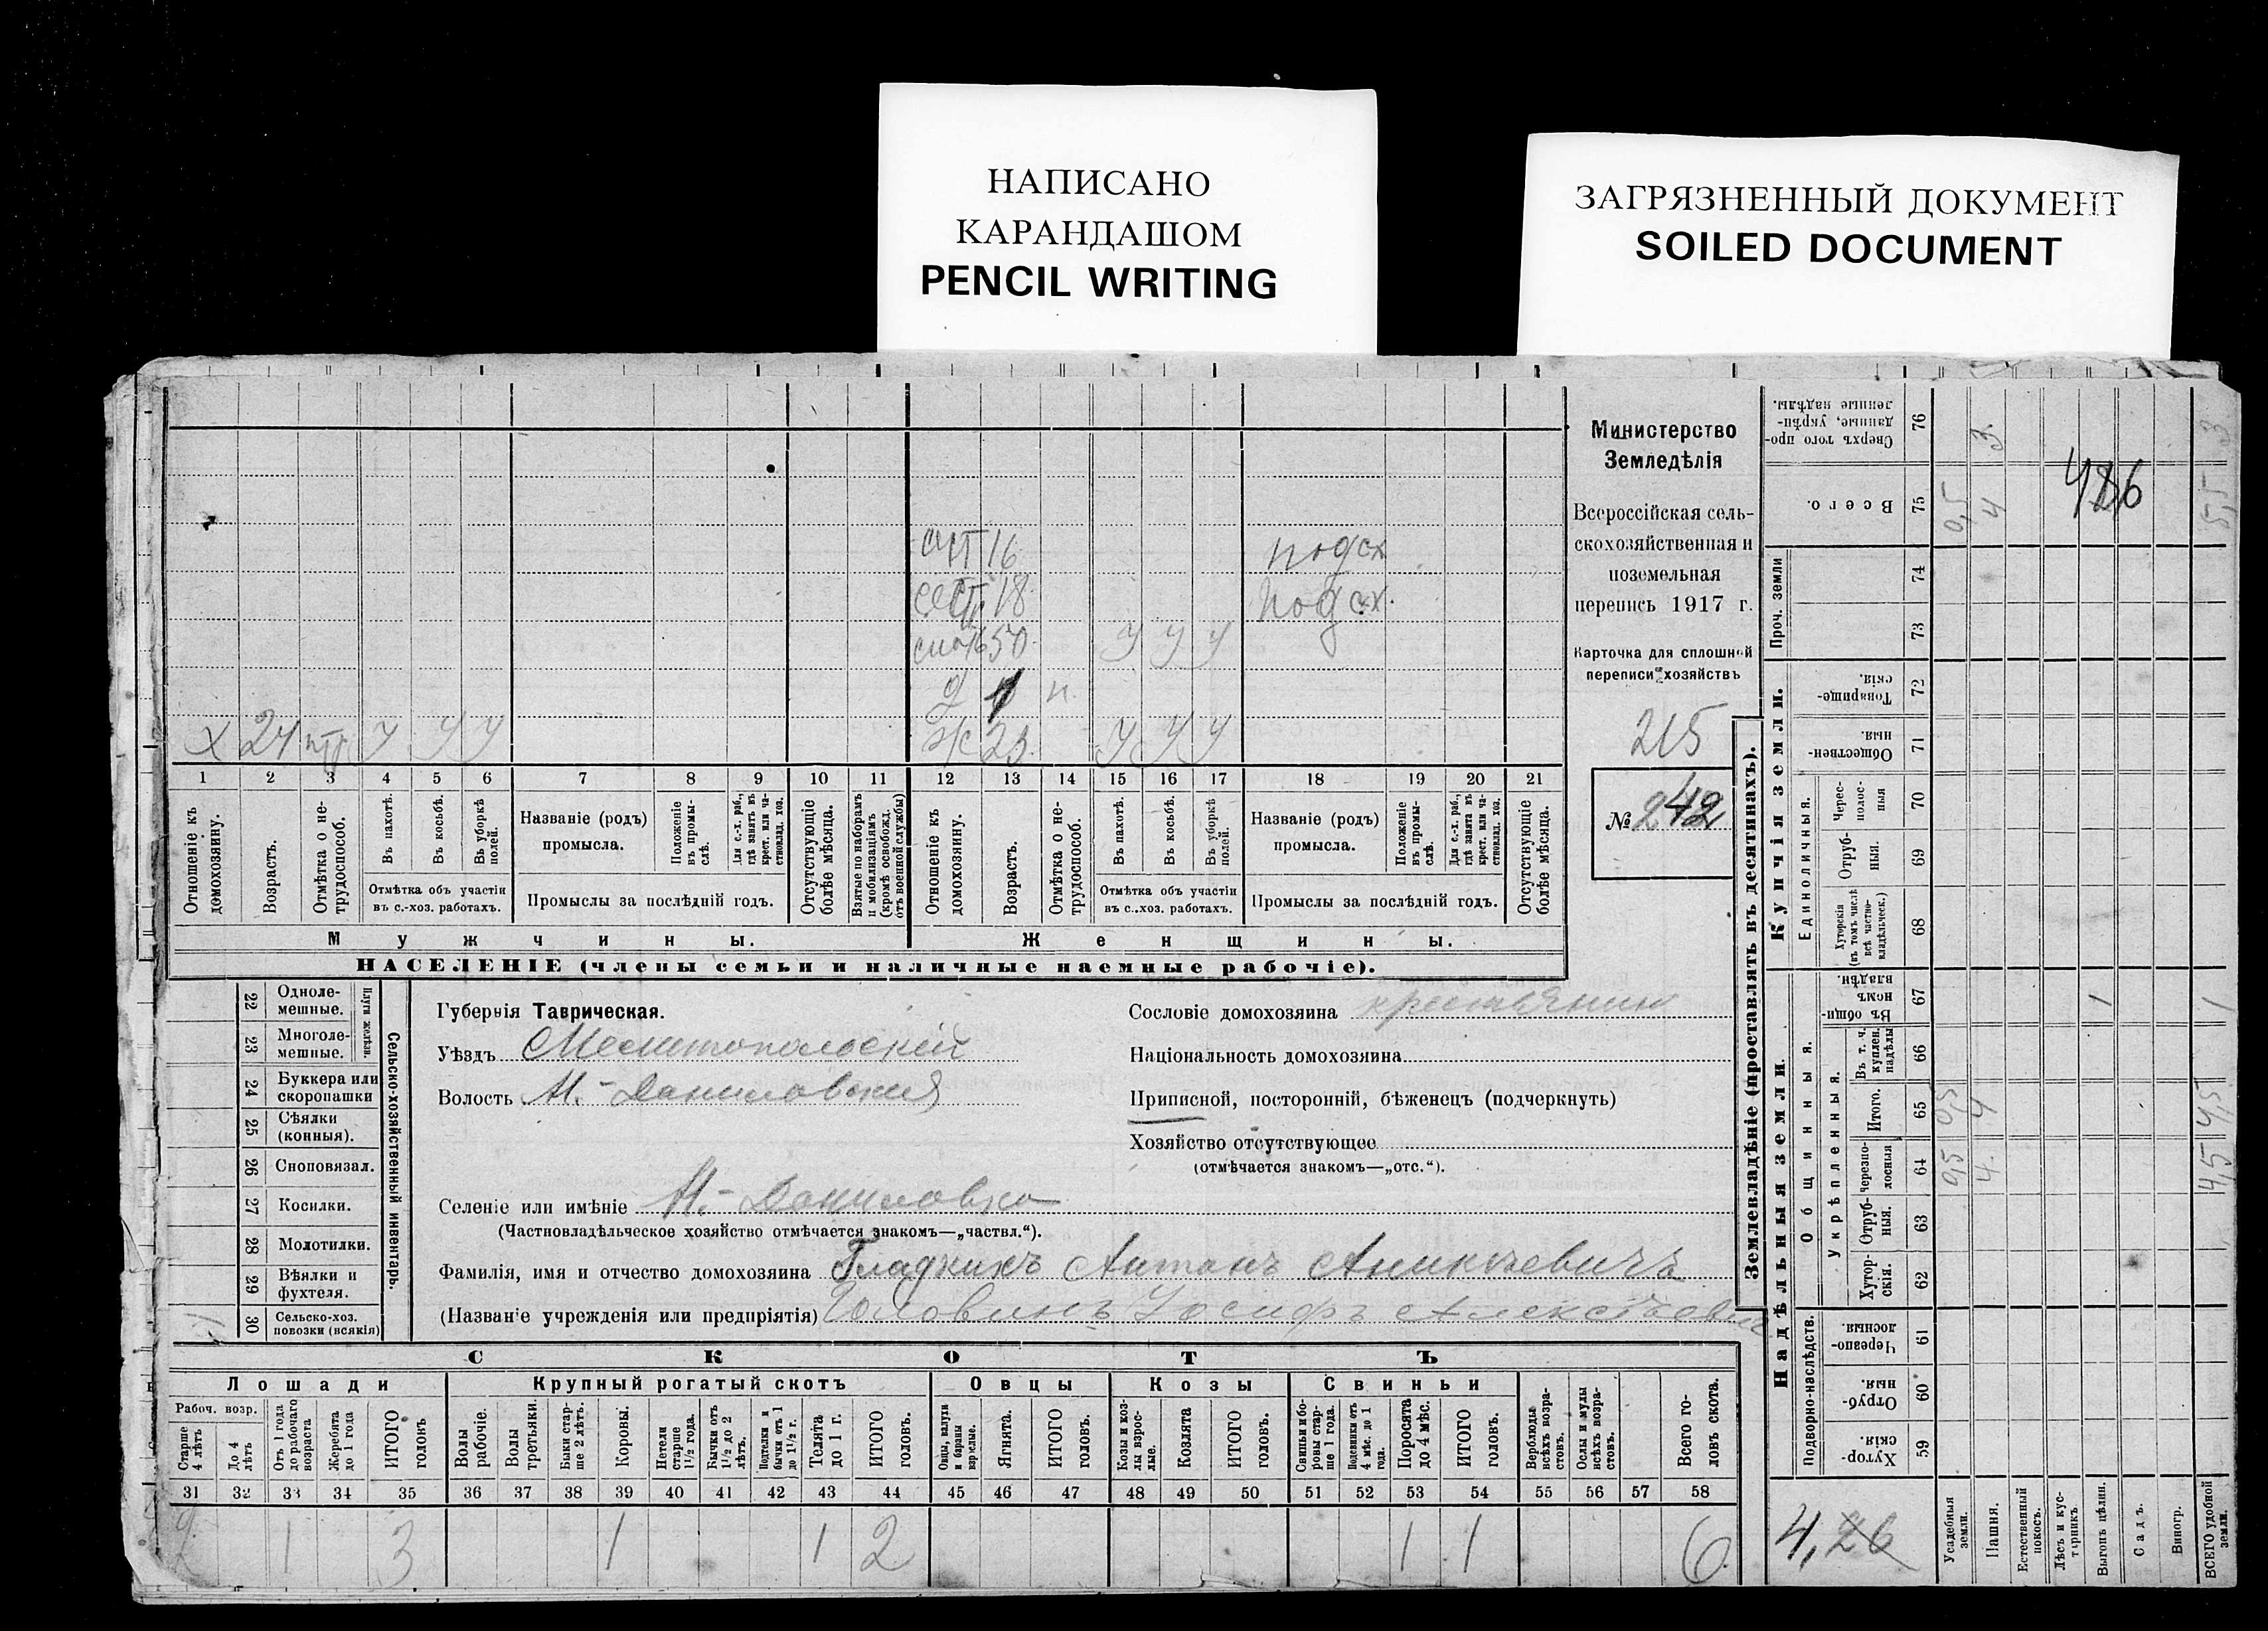 НАПИСАНО
КАРАНДАШОМ
PENCIL WRITING
ЗАГРЯЗНЕННЫЙ ДОКУМЕНТ
SOILED DOCUMENT
16 подсх
18 подсх.
50 У У У
д 1 н.
Х 24 У У У ж 23 У У У
1 2 3 4 5 6 7 8 9 10 11 12 13 14 15 16 17 18 19 20 21
Отношеніе къ домохозяину.
Возрастъ.
Отмѣтка о нетрудоспособ.
Въ пахотѣ.
Въ косьбѣ.
Въ уборкѣ полей.
Отмѣтка объ участіи въ с.-хоз. работахъ.
Названіе (родъ) промысла.
Положеніе въ промыслѣ.
Для с.-х. раб., гдѣ занятъ въ крест. или частновлад. хоз.
Промыслы за послѣдній годъ.
Отсутствующіе болѣе мѣсяца.
Взятые по наборамъ и мобилизаціямъ (кромѣ освобожд. отъ военной службы)
Отношеніе къ домохозяину.
Возрастъ.
Отмѣтка о нетрудоспособ.
Въ пахотѣ.
Въ косьбѣ.
Въ уборкѣ полей.
Отмѣтка объ участіи въ с.-хоз. работахъ.
Названіе (родъ) промысла.
Положеніе въ промыслѣ.
Для с.-х. раб., гдѣ занята въ крест. или частновлад. хоз.
Промыслы за послѣдній годъ.
Отсутствующіе болѣе мѣсяца.
Мужчины. Женщины.
НАСЕЛЕНІЕ (члены семьи и наличные наемные рабочіе).
Министерство
Земледѣлія
Всероссійская сель-
скохозяйственная и
поземельная
перепись 1917 г.
Карточка для сплошной
переписи хозяйствъ
215
№ 242
Сельско-хозяйственный инвентарь.
Плуги желѣзн.
22 Однолемешные.
23 Многолемешные.
24 Буккера или скоропашки
25 Сѣялки (конныя).
26 Сноповязал.
27 Косилки.
28 Молотилки.
29 Вѣялки и фухтеля.
30 Сельско-хоз. повозки (всякія) 1
Губернія Таврическая.
Уѣздъ Мелитопольскій
Волость Н.-Даниловская
Селеніе или имѣніе Н.-Даниловка
(Частновладѣльческое хозяйство отмѣчается знакомъ—„частвл.“).
Фамилія, имя и отчество домохозяина Гладкихъ Антонъ Аникѣевичъ
(Названіе учрежденія или предпріятія) Головинъ Іосифъ Алексѣевич
Сословіе домохозяина крестьянин
Національность домохозяина
Приписной, посторонній, бѣженецъ (подчеркнуть)
Хозяйство отсутствующее
(отмѣчается знакомъ—„отс.“).
СКОТЪ
Лошади Крупный рогатый скотъ Овцы Козы Свиньи
Рабоч. возр.
Старше 4 лѣтъ
До 4 лѣтъ
Отъ 1 года до рабочаго возраста
Жеребята до 1 года
ИТОГО головъ
Волы рабочіе.
Волы третьяки.
Быки старше 2 лѣтъ.
Коровы.
Нетели старше 1½ года.
Бычки отъ 1½ до 2 лѣтъ.
Подтелки и бычки отъ 1 до 1½ г.
Телята до 1 г.
ИТОГО головъ.
Овцы, валухи и бараны взрослые.
Ягнята.
ИТОГО головъ.
Козы и козлы взрослые.
Козлята
ИТОГО головъ.
Свиньи и боровы старше 1 года.
Подсвинки отъ 4 мѣс. до 1 года.
Поросята до 4 мѣс.
ИТОГО головъ.
Верблюды всѣхъ возрастовъ.
Ослы и мулы всѣхъ возрастовъ.
Всего головъ скота.
31 32 33 34 35 36 37 38 39 40 41 42 43 44 45 46 47 48 49 50 51 52 53 54 55 56 57 58
1 3 1 1 2 1 1 6
Землевладѣніе (проставлять въ десятинахъ).
Надѣльныя земли. Купчія земли.
Подворно-наслѣдств. Общинныя. Укрѣпленныя. Единоличныя. Проч. земли
Хуторскія 59
Отрубныя. 60
Черезполосныя 61
Хуторскія. 62
Отрубныя. 63
Черезполосныя 64
Итого. 65
Въ т. ч. куплен. надѣлы 66
Въ общинномъ владѣн. 67
Хуторскія (въ томъ числѣ всѣ частновладѣльческ.) 68
Отрубныя. 69
Черезполосныя 70
Общественныя. 71
Товарищескія. 72
73
74
Всего. 75
Сверхъ того проданные, укрѣпленные надѣлы. 76
Усадебныя земли. 0,5 0,5 0,5
Пашня. 4. 4 4 3.
Естественный покосъ.
Лѣсъ и кустарникъ.
Выгонъ цѣлин. 1
Садъ.
Виногр.
ВСЕГО удобной земли. 4,5 4,5 1 5,5 3
4,26